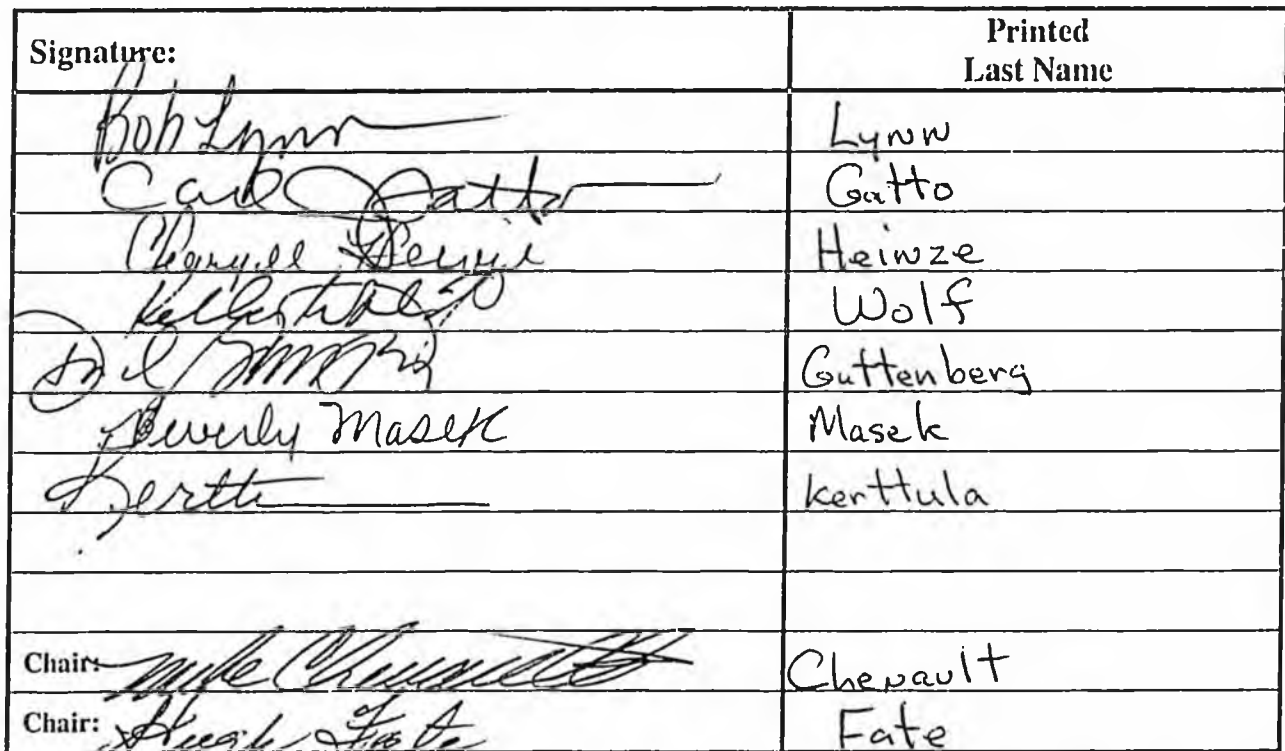 Signature: Printed Last Name
Bob Lynn Lynn
Carl Gatto Gatto
Heinze
Kelly Wolf Wolf
Guttenberg
Beverly Masek Masek
Kertt Kerttula
Chair: Mike Chenault Chenault
Chair: Hugh Fate Fate